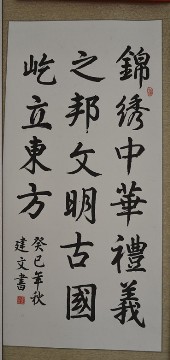 錦绣中華禮義
之邦文明古國
屹立東方
癸巳年秋
建文書